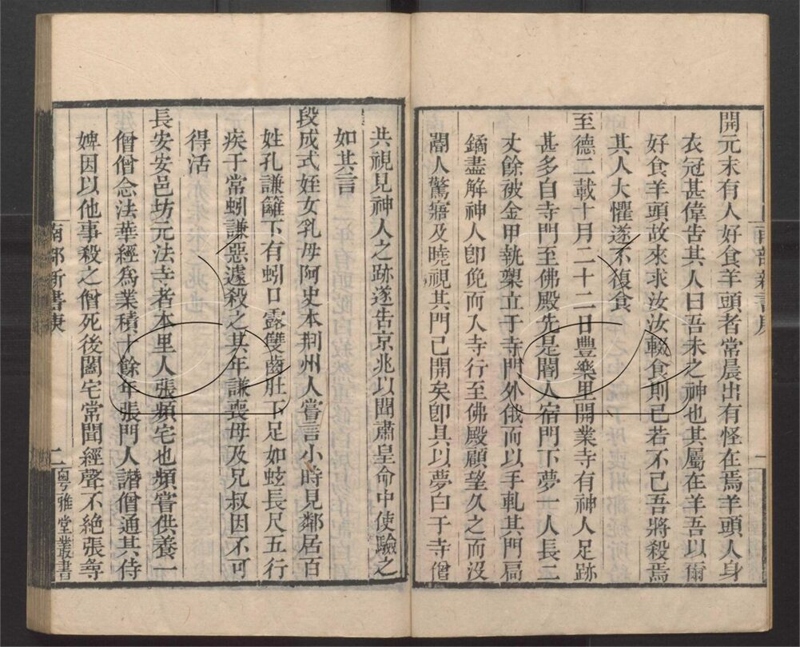 開元末有人好食羊頭者常晨出有怪在焉羊頭人身
衣冠甚偉告其人曰吾未之神也其屬在羊吾以爾
好食羊頭故來求汝汝輟食則已若不已吾將殺焉
其人大懼遂不復食
至德二載十月二十二日豐樂里開業寺有神人足跡
甚多自寺門至佛殿先是閽人宿門下夢一人長二
丈餘被金甲執槊立于寺門外俄而以手軋其門扃
鐍盡解神人即俛而入寺行至佛殿顧望久之而沒
閽人驚寤及曉視其門已開矣卽具以夢白于寺僧
共視見神人之跡遂告京兆以聞肅皇命中使驗之
如其言
段成式姪女乳母阿史本荆州人嘗言小時見鄰居百
姓孔謙籬下有蚓口露雙齒肚下足如蚿長尺五行
疾于常蚓謙惡遽殺之其年謙喪母及兄叔因不可
得活
長安安邑坊元法寺者本里人張頻宅也頻嘗供養一
僧僧念法華經為業積十餘年張門人譖僧通其侍
婢因以他事殺之僧死後闔宅常聞經聲不絕張尋
南部新書庚
二
粤雅堂叢書